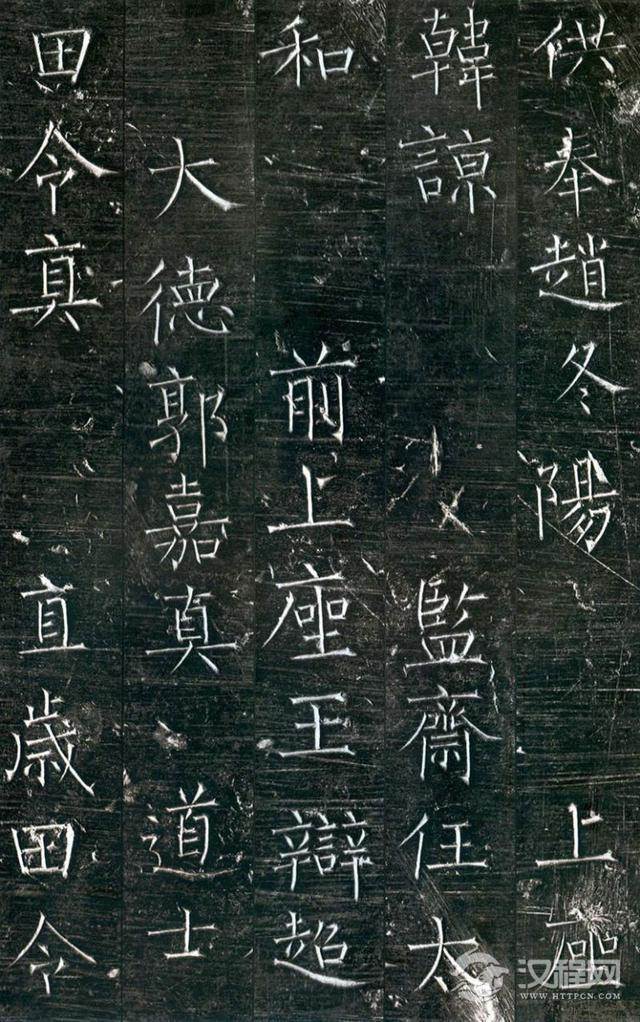 供奉趙冬陽 上
韓諒 監齋任太
和 前上座王辯超
大德郭嘉真 道士
田令真 直歲田令
汉程网
WWW.HTTPCN.COM